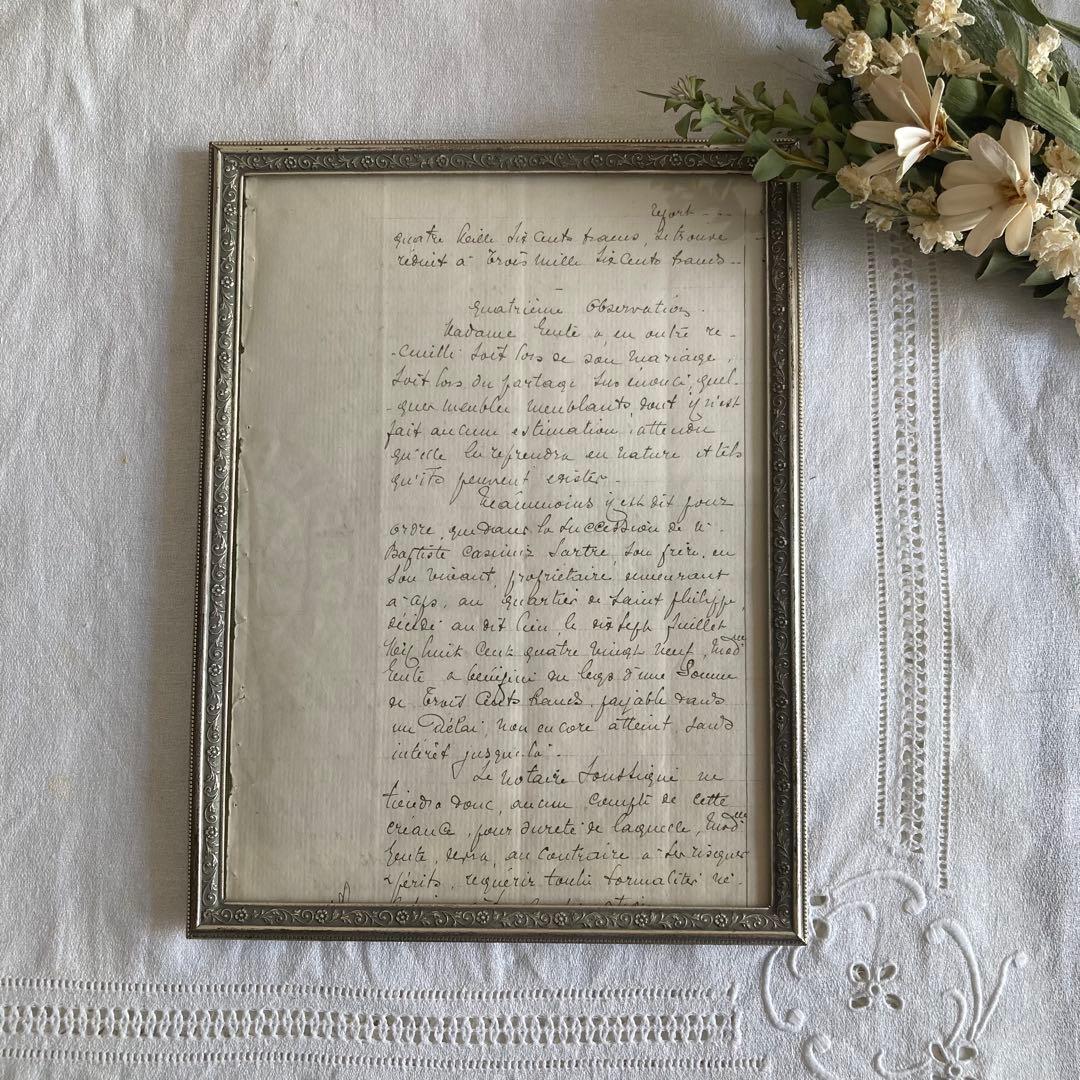 Report - - -
quatre mille six cents francs, se trouve
réduit à trois mille six cents francs - -
Quatrième Observation.
Madame Gente a en outre re-
-cueilli soit lors de son mariage,
soit lors du partage sus énoncé, quel-
-ques meubles meublants dont il n'est
fait aucune estimation, attendu
qu'elle les reprendra en nature et tels
qu'ils peuvent exister.
Néanmoins il est dit pour
ordre, que dans la succession de M.
Baptiste Casimir Sartre, son frère, en
son vivant, propriétaire, demeurant
à aps, au quartier de Saint philippe,
décédé au dit lieu, le dix sept juillet
Mil huit cent quatre vingt neuf, Mad.me
Gente a bénéficié du legs d'une Somme
de Trois Cents francs, payable dans
un Délai, non encore atteint, sans
intérêt jusque là.
Le Notaire Soussigné ne
tiendra donc, aucun compte de cette
créance, pour sureté de laquelle, Mad.me
Gente, devra, au contraire à ses risques
& périls, requérir toutes formalités né-